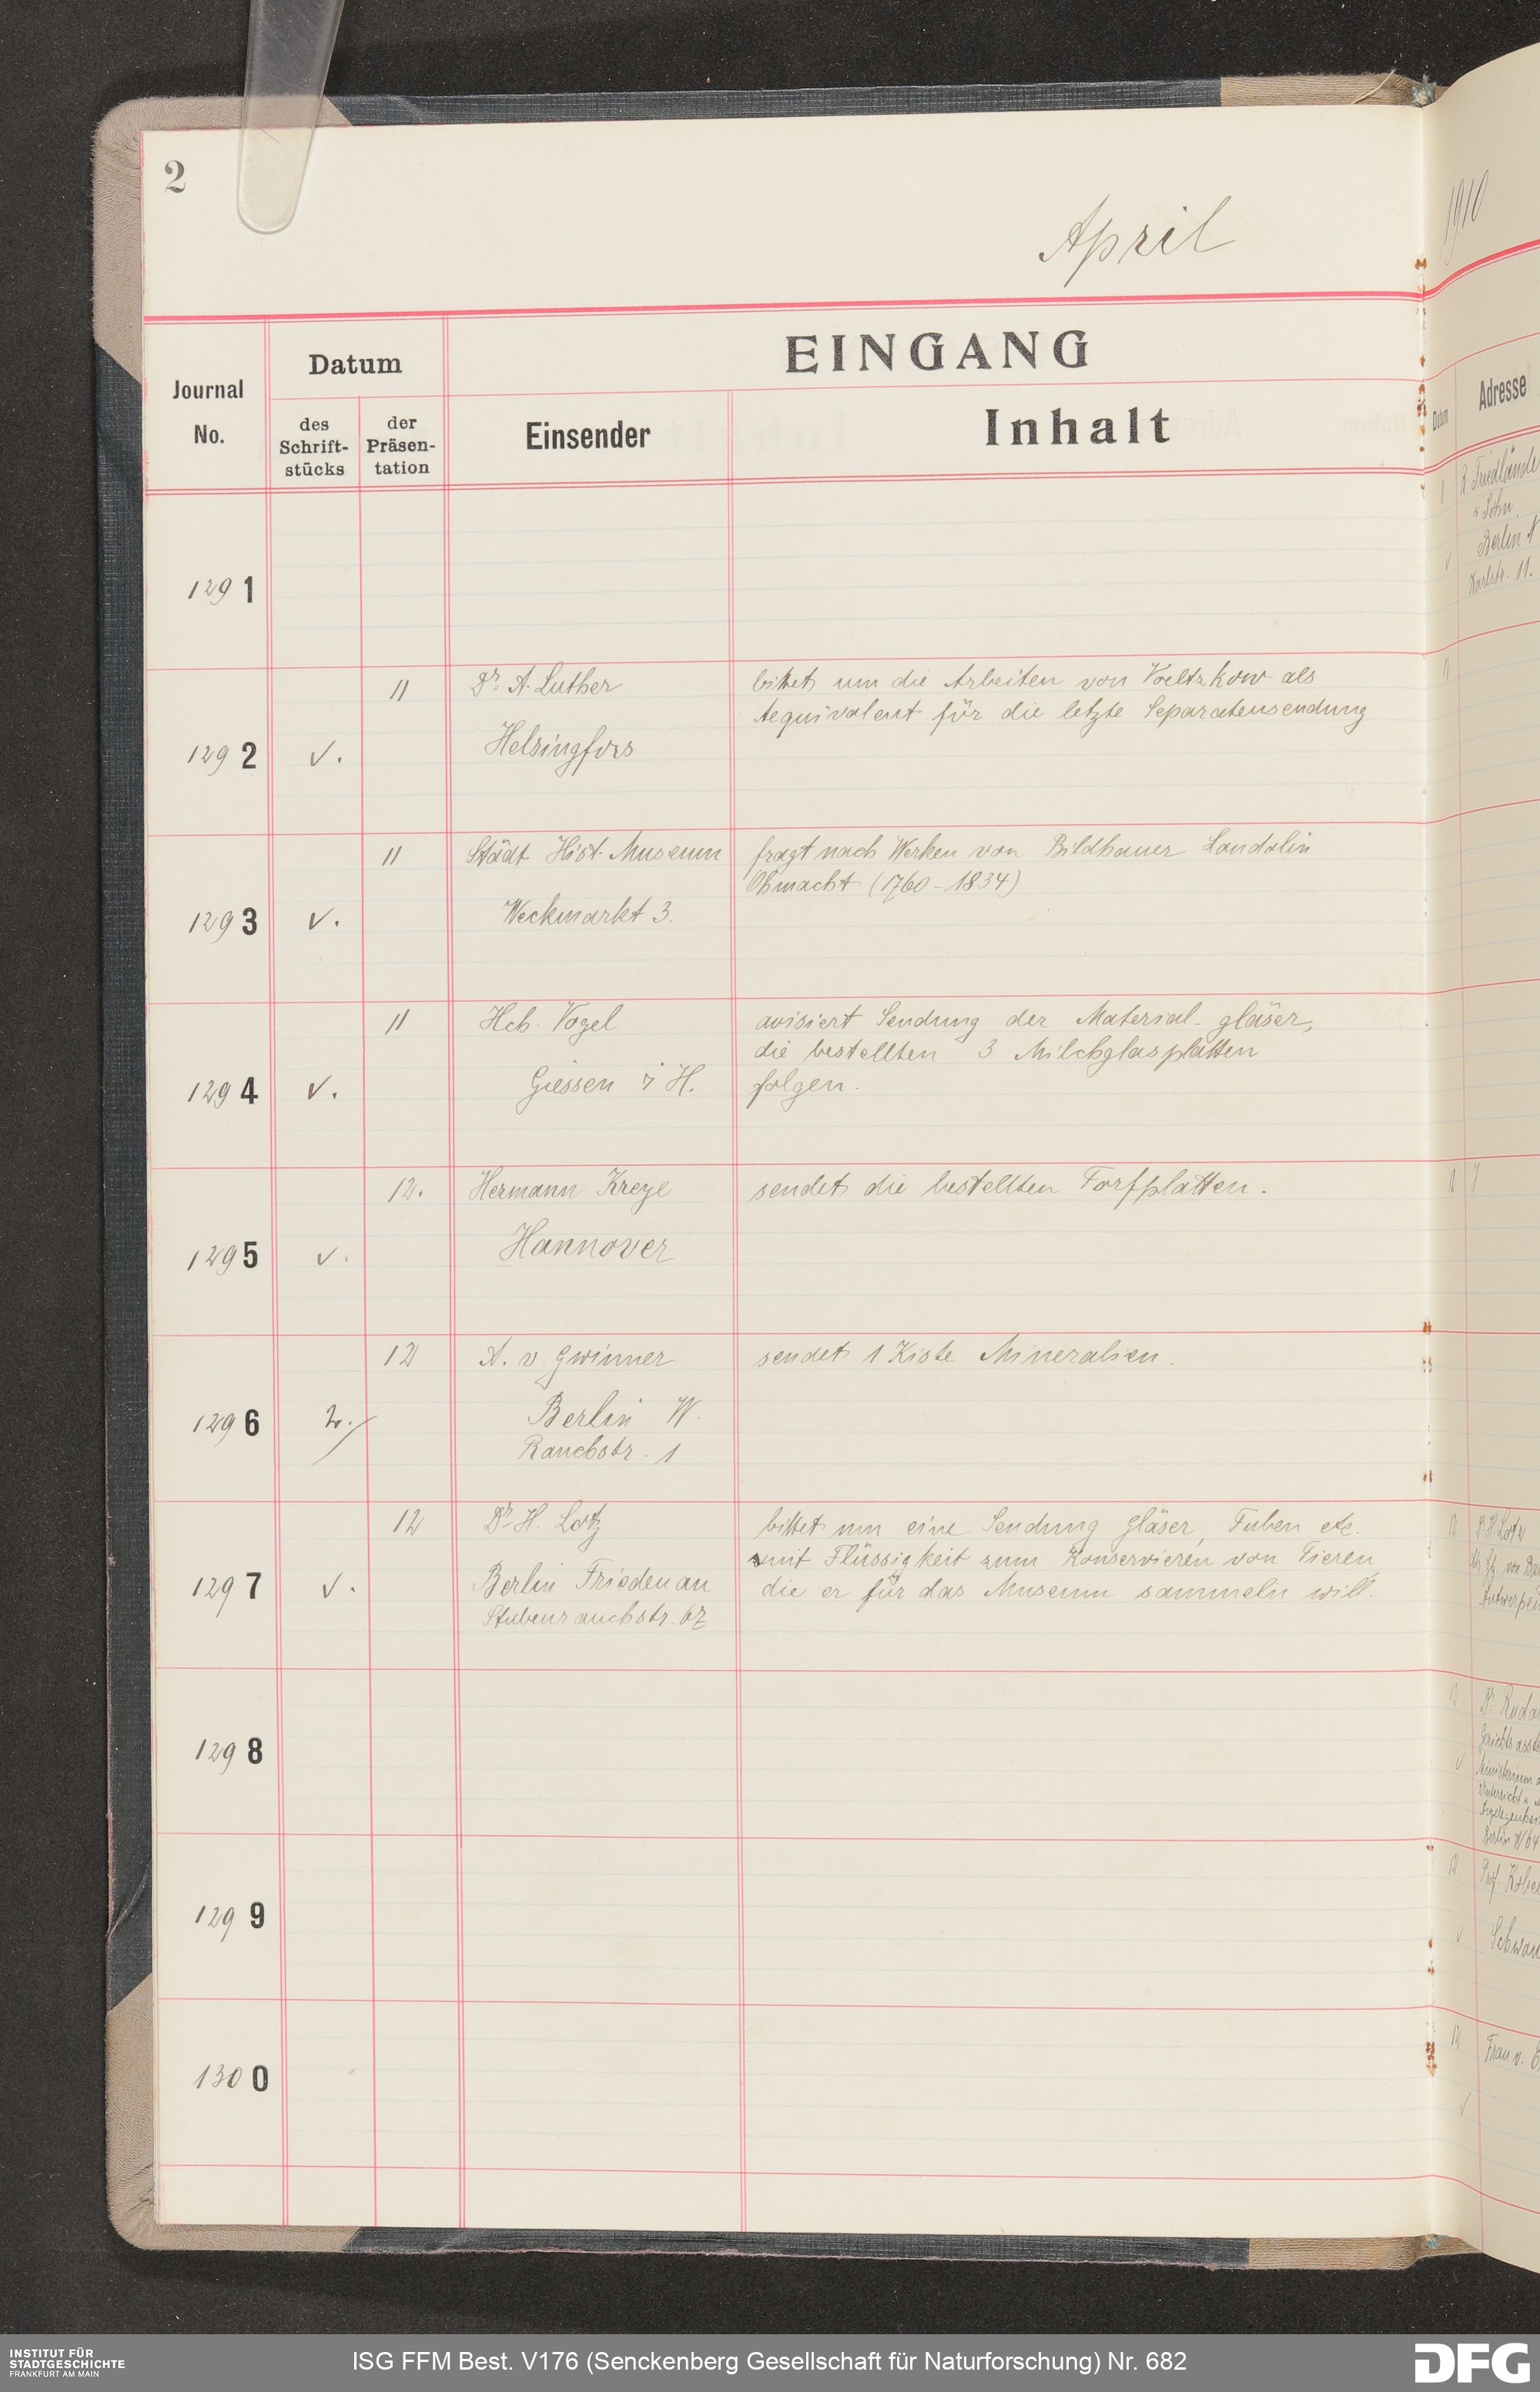 2
April
1910
EINGANG
Datum
Journal
No.
des
Schrift-
stücks
der
Präsen-
tation
Einsender
Inhalt
Datum
Adresse
1291
R Friedlände
u Sohn
Berlin N
Karlstr. 11.
1292
11
v.
Dr. A. Luther
Helsingfors
bittet um die Arbeiten von Voeltzkow als
Aequivalent für die letzte Separatensendung
11
1293
11
v.
Städt Hist. Museum
Weckmarkt 3.
fragt nach Werken von Bildhauer Landolin
Ohmacht (1760-1834)
1294
11
v.
Hch. Vogel
Giessen i H.
avisiert Sendung der Material-gläser,
die bestellten 3 Milchglasplatten
folgen.
1295
12.
v.
Hermann Kreye
Hannover
sendet die bestellten Torfplatten.
1296
12
A. v. Gwinner
Berlin W.
Rauchstr. 1
sendet 1 Kiste Mineralien.
1297
12
v.
Dr. H. Lotz
Berlin Friedenau
Stubenrauchstr. 67
bittet um eine Sendung Gläser, Tuben etc.
mit Flüssigkeit zum Konservieren von Tieren,
die er für das Museum sammeln will.
12
Dr H Lotz
Antwerpen
1298
Berlin W64
1299
12
Prof. Kobe
Schwa
1300
12
Frau v.
INSTITUT FÜR
STADTGESCHICHTE
FRANKFURT AM MAIN
ISG FFM Best. V176 (Senckenberg Gesellschaft für Naturforschung) Nr. 682
DFG